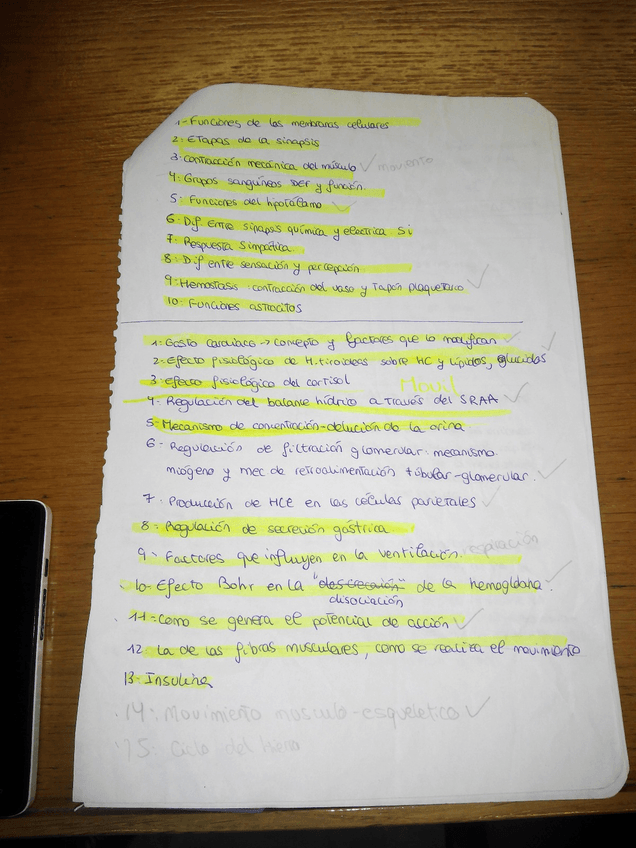 1- Funciones de las membranas celulares
2- Etapas de la sinapsis
3- Contracción mecánica del músculo ✓ movimiento
4- Grupos sanguíneos y función
5- Funciones del hipotálamo ✓
6- Dif entre sinapsis química y electrica Si
7- Respuesta Simpática
8- Dif entre sensación y percepción
9- Hemostasis: contracción del vaso y Tapón plaquetario ✓
10- Funciones astrocitos
1- Gasto Cardiaco → Concepto y factores que lo modifican ✓
2- Efecto fisiológico de H. tiroideas sobre HC y lípidos, glucidos ✓
3- Efecto fisiológico del cortisol Móvil
4- Regulación del balance hídrico a través del SRAA ✓
5- Mecanismo de concentración-dilución de la orina
6- Regulación de filtración glomerular: mecanismo
miógeno y mec de retroalimentación tubular-glomerular. ✓
7- Producción de HCl en las células parietales ✓
8- Regulación de secreción gástrica.
9- Factores que influyen en la ventilación. respiración
10- Efecto Bohr en la " " de la hemoglobina ✓
disociación
11- Como se genera el potencial de acción ✓
12 La de las fibras musculares, como se realiza el movimiento
13- Insulina
14- Movimiento musculo-esqueletico ✓
15- Ciclo del hierro